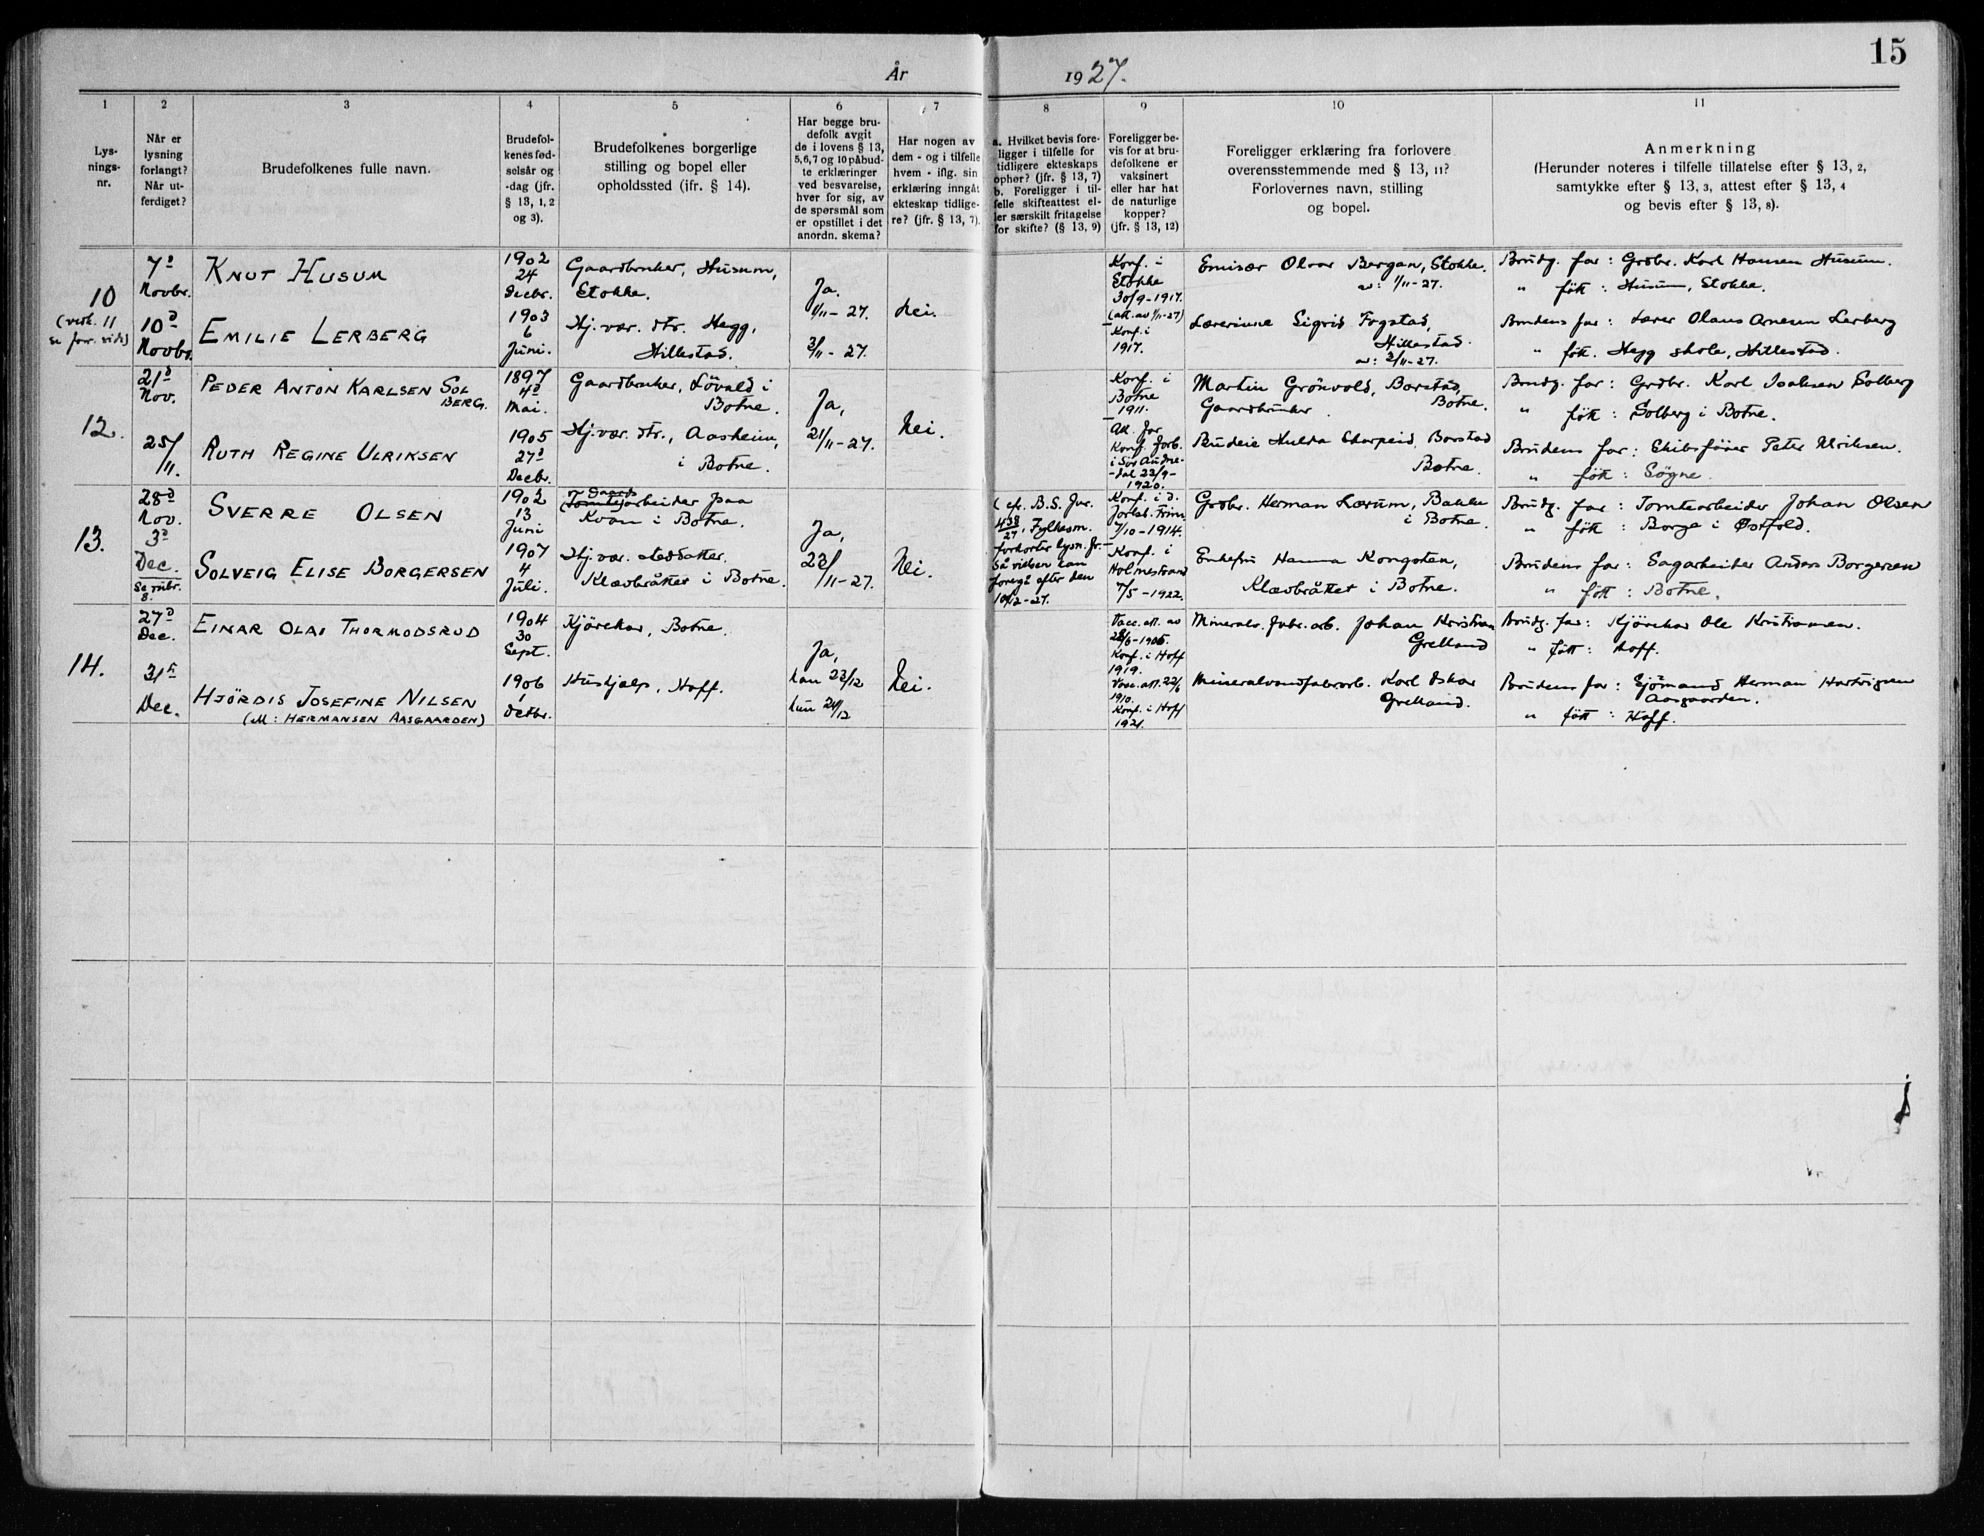 15
År 1927.
1 2 3 4 5 6 7 8 9 10 11
Lys-
nings-
nr.
Når er
lysning
forlangt?
Når ut-
ferdiget?
Brudefolkenes fulle navn.
Brudefol-
kenes fød-
selsår og
-dag (jfr.
§ 13, 1, 2
og 3).
Brudefolkenes borgerlige
stilling og bopel eller
opholdssted (ifr. § 14).
Har begge bru-
defolk avgit
de i lovens § 13,
5, 6, 7 og 10 påbud-
te erklæringer
ved besvarelse,
hver for sig, av
de spørsmål som
er opstillet i det
anordn. skema?
Har nogen av
dem - og i tilfelle
hvem - iflg. sin
erklæring inngått
ekteskap tidlige-
re? (jfr. § 13, 7).
a. Hvilket bevis fore-
ligger i tilfelle for
tidligere ekteskaps
ophør? (jfr. § 13, 7)
b. Foreligger i til-
felle skifteattest el-
ler særskilt fritagelse
for skifte? (§ 13, 9)
Foreligger be-
vis for at bru-
defolkene er
vaksinert
eller har hat
de naturlige
kopper?
(jfr. § 13, 12)
Foreligger erklæring fra forlovere
overensstemmende med § 13, 11?
Forlovernes navn, stilling
og bopel.
Anmerkning
(Herunder noteres i tilfelle tillatelse efter § 13, 2,
samtykke efter § 13, 3, attest efter § 13, 4
og bevis efter § 13, 8).
10
(vedk. 11
se forr. side)
7d
Novbr.
10d
Novbr.
KNUT HUSUM
1902
24
Decbr.
Gaardbruker, Husum,
Stokke.
Ja.
1/11-27.
Nei.
Konf. i
Stokke
30/9-1917.
(att. av 1/11-27)
Emisær Olvar Bergan, Stokke.
av: 1/11-27.
Brudg. far: Grdbr. Karl Hansen Husum.
" født: Husum, Stokke.
EMILIE LERBERG
1903
6
Juni.
Hj.vær. dtr. Hegg,
Hillestad.
2/11-27.
Konf. i
1917.
Lærerinne Sigrid Fogstad,
Hillestad.
av: 2/11-27.
Brudens far: Lærer Olaus Arnesen Lerberg
" født. Hegg skole, Hillestad.
12.
21d
Nov.
25/11.
PEDER ANTON KARLSEN SOL
BERG.
1897
4d
Mai.
Gaardbruker, Løvald i
Botne.
Ja,
21/11-27.
Nei.
Konf. i
Botne
1911.
Martin Grönvold, Borstad,
Gaardbruker. Botne.
Brudg. far: Grdbr. Karl Isaksen Solberg
" født: Solberg i Botne.
RUTH REGINE ULRIKSEN
1905
27d
Decbr.
Hj.vær. dtr., Aasheim,
i Botne.
Att. for
Konf. forb.
i Sör Audne-
dal 23/9-
1920.
Budeie Hulda Skarpeid, Borstad
Botne.
Brudens far: Skibsfører Peter Ulriksen.
" født: Søgne.
13.
28d
Nov.
3d
Dec.
SVERRE OLSEN
1902
13
Juni
Gaards
(Tomte)arbeider paa
Kvan i Botne.
Ja,
22/11-27.
Nei.
(cf. B.S. Jnr.
438/27, Fylkesm.
forkorter lysn. fr.
så vielsen kan
foregå efter den
10/12-27.
Konf. i d.
Forlat. Frim
7/10-1914.
Grdbr. Herman Lærum, Bakke
i Botne.
Brudg. far: Tomtearbeider Johan Olsen
" født: Borge i Østfold.
SOLVEIG ELISE BORGERSEN
1907
4
Juli.
Hj.vær. steddatter.
Klævbråttet i Botne.
Konf. i
Holmestrand
7/5-1922.
Enkefru Hanna Kongsten,
Klævbråttet i Botne.
Brudens far: Sagarbeider Anders Borgersen
" født: Botne.
Se rubr.
8.
14.
27d
Dec.
31te
Dec.
EINAR OLAI THORMODSRUD
1904
30
Sept.
Kjörekar, Botne.
Ja,
han 23/12
hun 24/12
Nei.
Vacc.att. av
28/6-1905.
Konf. i Hoff
1919.
Mineralv.fabr.arb. Johan Kristian
Grelland
Brudg. far: Kjörekar Ole Kristiansen.
" født: Hoff.
HJÖRDIS JOSEFINE NILSEN
(ell: HERMANSEN AASGAARDEN)
1906
1
Octbr.
Hushjælp, Hoff.
Vacc.att. 22/6
1910.
Konf. i Hoff
1921.
Mineralvandfabrarb. Karl Oskar
Grelland.
Brudens far: Sjömand Herman Hartvigsen
Aasgaarden.
" født: Hoff.